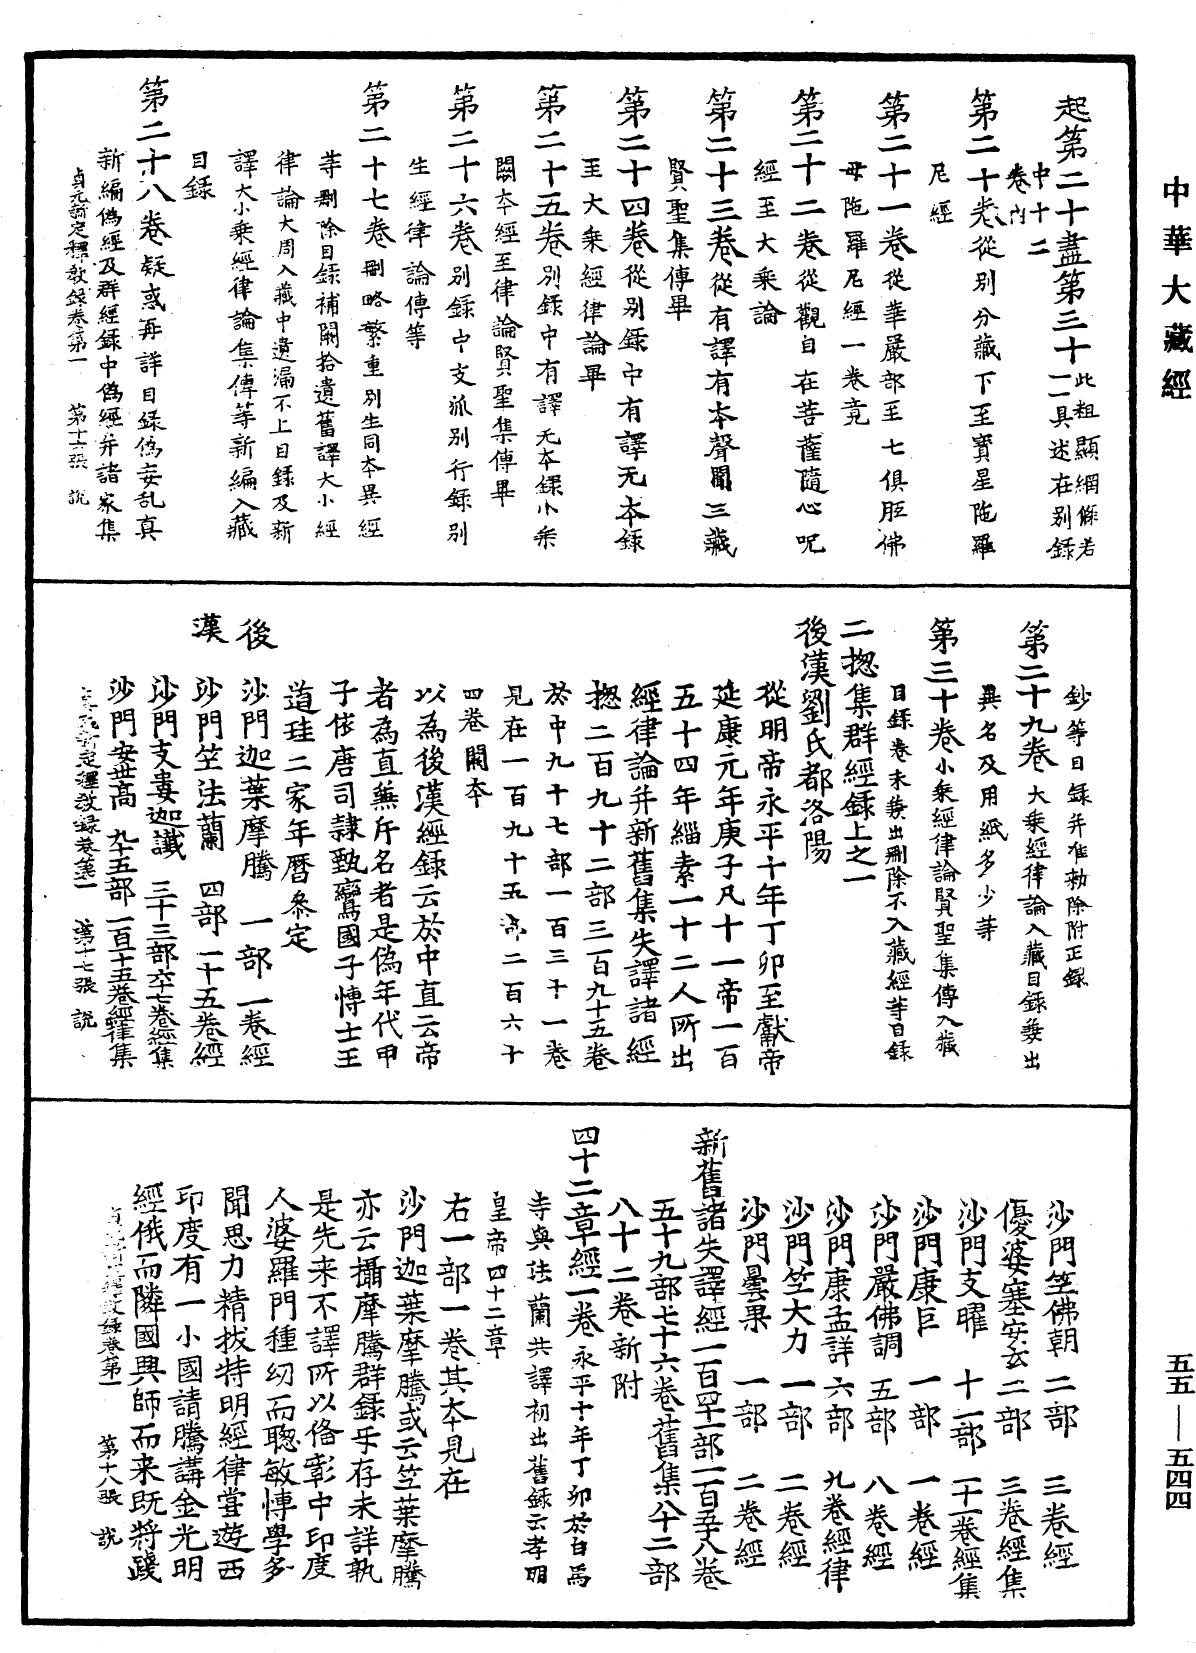 中華大藏經
起第二十盡第三十一二具述在別錄此粗顯綱條若
中十二
卷內
第二十卷從別分藏下至寶星陁羅
尼經
第二十一卷從華嚴部至七俱胝佛
母陁羅尼經一卷竟
第二十二卷從觀自在菩薩隨心呪
經至大乘論
第二十三卷從有譯有本聲聞三藏
賢聖集傳畢
第二十四卷從別錄中有譯无本錄
至大乘經律論畢
第二十五卷別錄中有譯无本錄小乘
闕本經至律論賢聖集傳畢
第二十六卷別錄中支派別行錄別
生經律論傳等
第二十七卷刪略繁重別生同本異經
等刪除目錄補闕拾遺舊譯大小經
律論大周入藏中遺漏不上目錄及新
譯大小乘經律論集傳等新編入藏
目錄
第二十八卷疑惑再詳目錄僞妄乱真
新編僞經及群經錄中僞經并諸家集
貞元新定釋教錄卷第一　第十六張　說
鈔等目錄并准勅除附正錄
第二十九卷大乘經律論入藏目錄兼出
異名及用紙多少等
第三十卷小乘經律論賢聖集傳入藏
目錄卷末兼出刪除不入藏經等目錄
二揔集群經錄上之一
後漢劉氏都洛陽
從明帝永平十年丁卯至獻帝
延康元年庚子凡十一帝一百
五十四年緇素一十二人所出
經律論并新舊集失譯諸經
揔二百九十二部三百九十五卷
於中九十七部一百三十一卷
見在一百九十五部二百六十
四卷闕本
以為後漢經錄云於中直云帝
者為直無斥名者是僞年代甲
子依唐司隸甄鸞國子愽士王
道珪二家年曆叅定
後　沙門迦葉摩騰　一部一卷經
漢　沙門竺法蘭　四部一十五卷經
沙門支婁迦讖　三十三部六十七卷經集
沙門安世高　九十五部一百一十五卷經律集
貞元新定釋教錄卷第一　第十七張　說
沙門竺佛朝　二部　三卷經
優婆塞安玄　二部　三卷經集
沙門支曜　十一部　一十一卷經集
沙門康巨　一部　一卷經
沙門嚴佛調　五部　八卷經
沙門康孟詳　六部　九卷經律
沙門竺大力　一部　二卷經
沙門曇果　一部　二卷經
新舊諸失譯經一百四十一部一百五十八卷
五十九部七十六卷舊集八十二部
八十二卷新附
四十二章經一卷永平十年丁卯於白馬
寺與法蘭共譯初出舊錄云孝明
皇帝四十二章
右一部一卷其本見在
沙門迦葉摩騰或云竺葉摩騰
亦云攝摩騰群錄互存未詳孰
是先来不譯所以俻彰中印度
人婆羅門種幼而聦敏愽學多
聞思力精拔特明經律甞遊西
印度有一小國請騰講金光明
經俄而隣國興師而来既將踐
貞元新定釋教錄卷第一　第十八張　說
五五—五四四